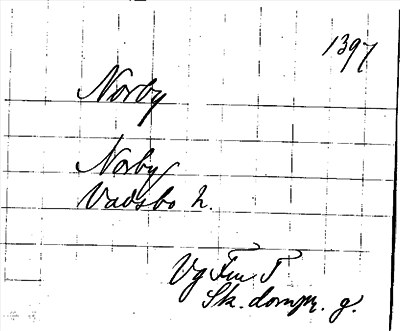 1397
Norby
Norby
Vadsbo h.
Vg Fru T
Sk. dompr. g.